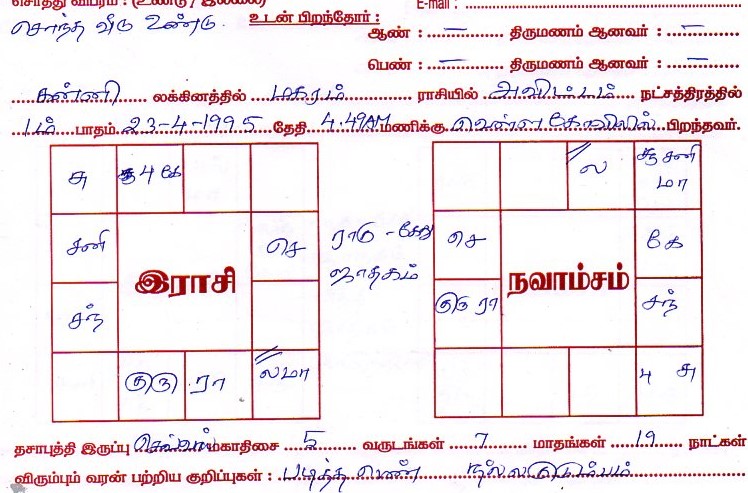 சொத்து விபரம் : (உண்டு / இல்லை) E-mail :
சொந்த வீடு உண்டு. உடன் பிறந்தோர் :
ஆண் : — திருமணம் ஆனவர் : —
பெண் : — திருமணம் ஆனவர் : —
கன்னி லக்கினத்தில் மகரம் ராசியில் அவிட்டம் நட்சத்திரத்தில்
1ம் பாதம் 23-4-1995 தேதி 4.49AM மணிக்கு வெள்ளகோவிலில் பிறந்தவர்.
சு சூ 4 கே ல சூ சனி
மா
சனி செ ராகு - கேது செ கே
ஜாதகம்
இராசி நவாம்சம்
சந் குரு ரா சந்
குரு ரா ல மா 4 சு
தசாபுத்தி இருப்பு செவ்வாய் மகாதிசை 5 வருடங்கள் 7 மாதங்கள் 19 நாட்கள்
விரும்பும் வரன் பற்றிய குறிப்புகள் : படித்த பெண் நல்ல குடும்பம்